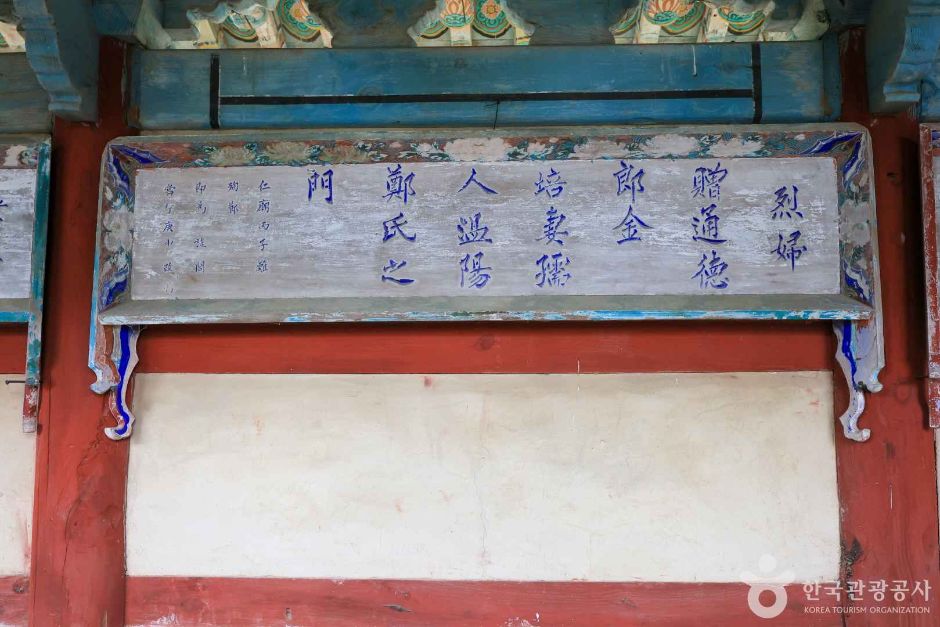 烈婦
贈通德
郎金
培妻孺
人溫陽
鄭氏之
門
仁廟丙子難
殉節
卽爲旌閭
한국관광공사
KOREA TOURISM ORGANIZATION